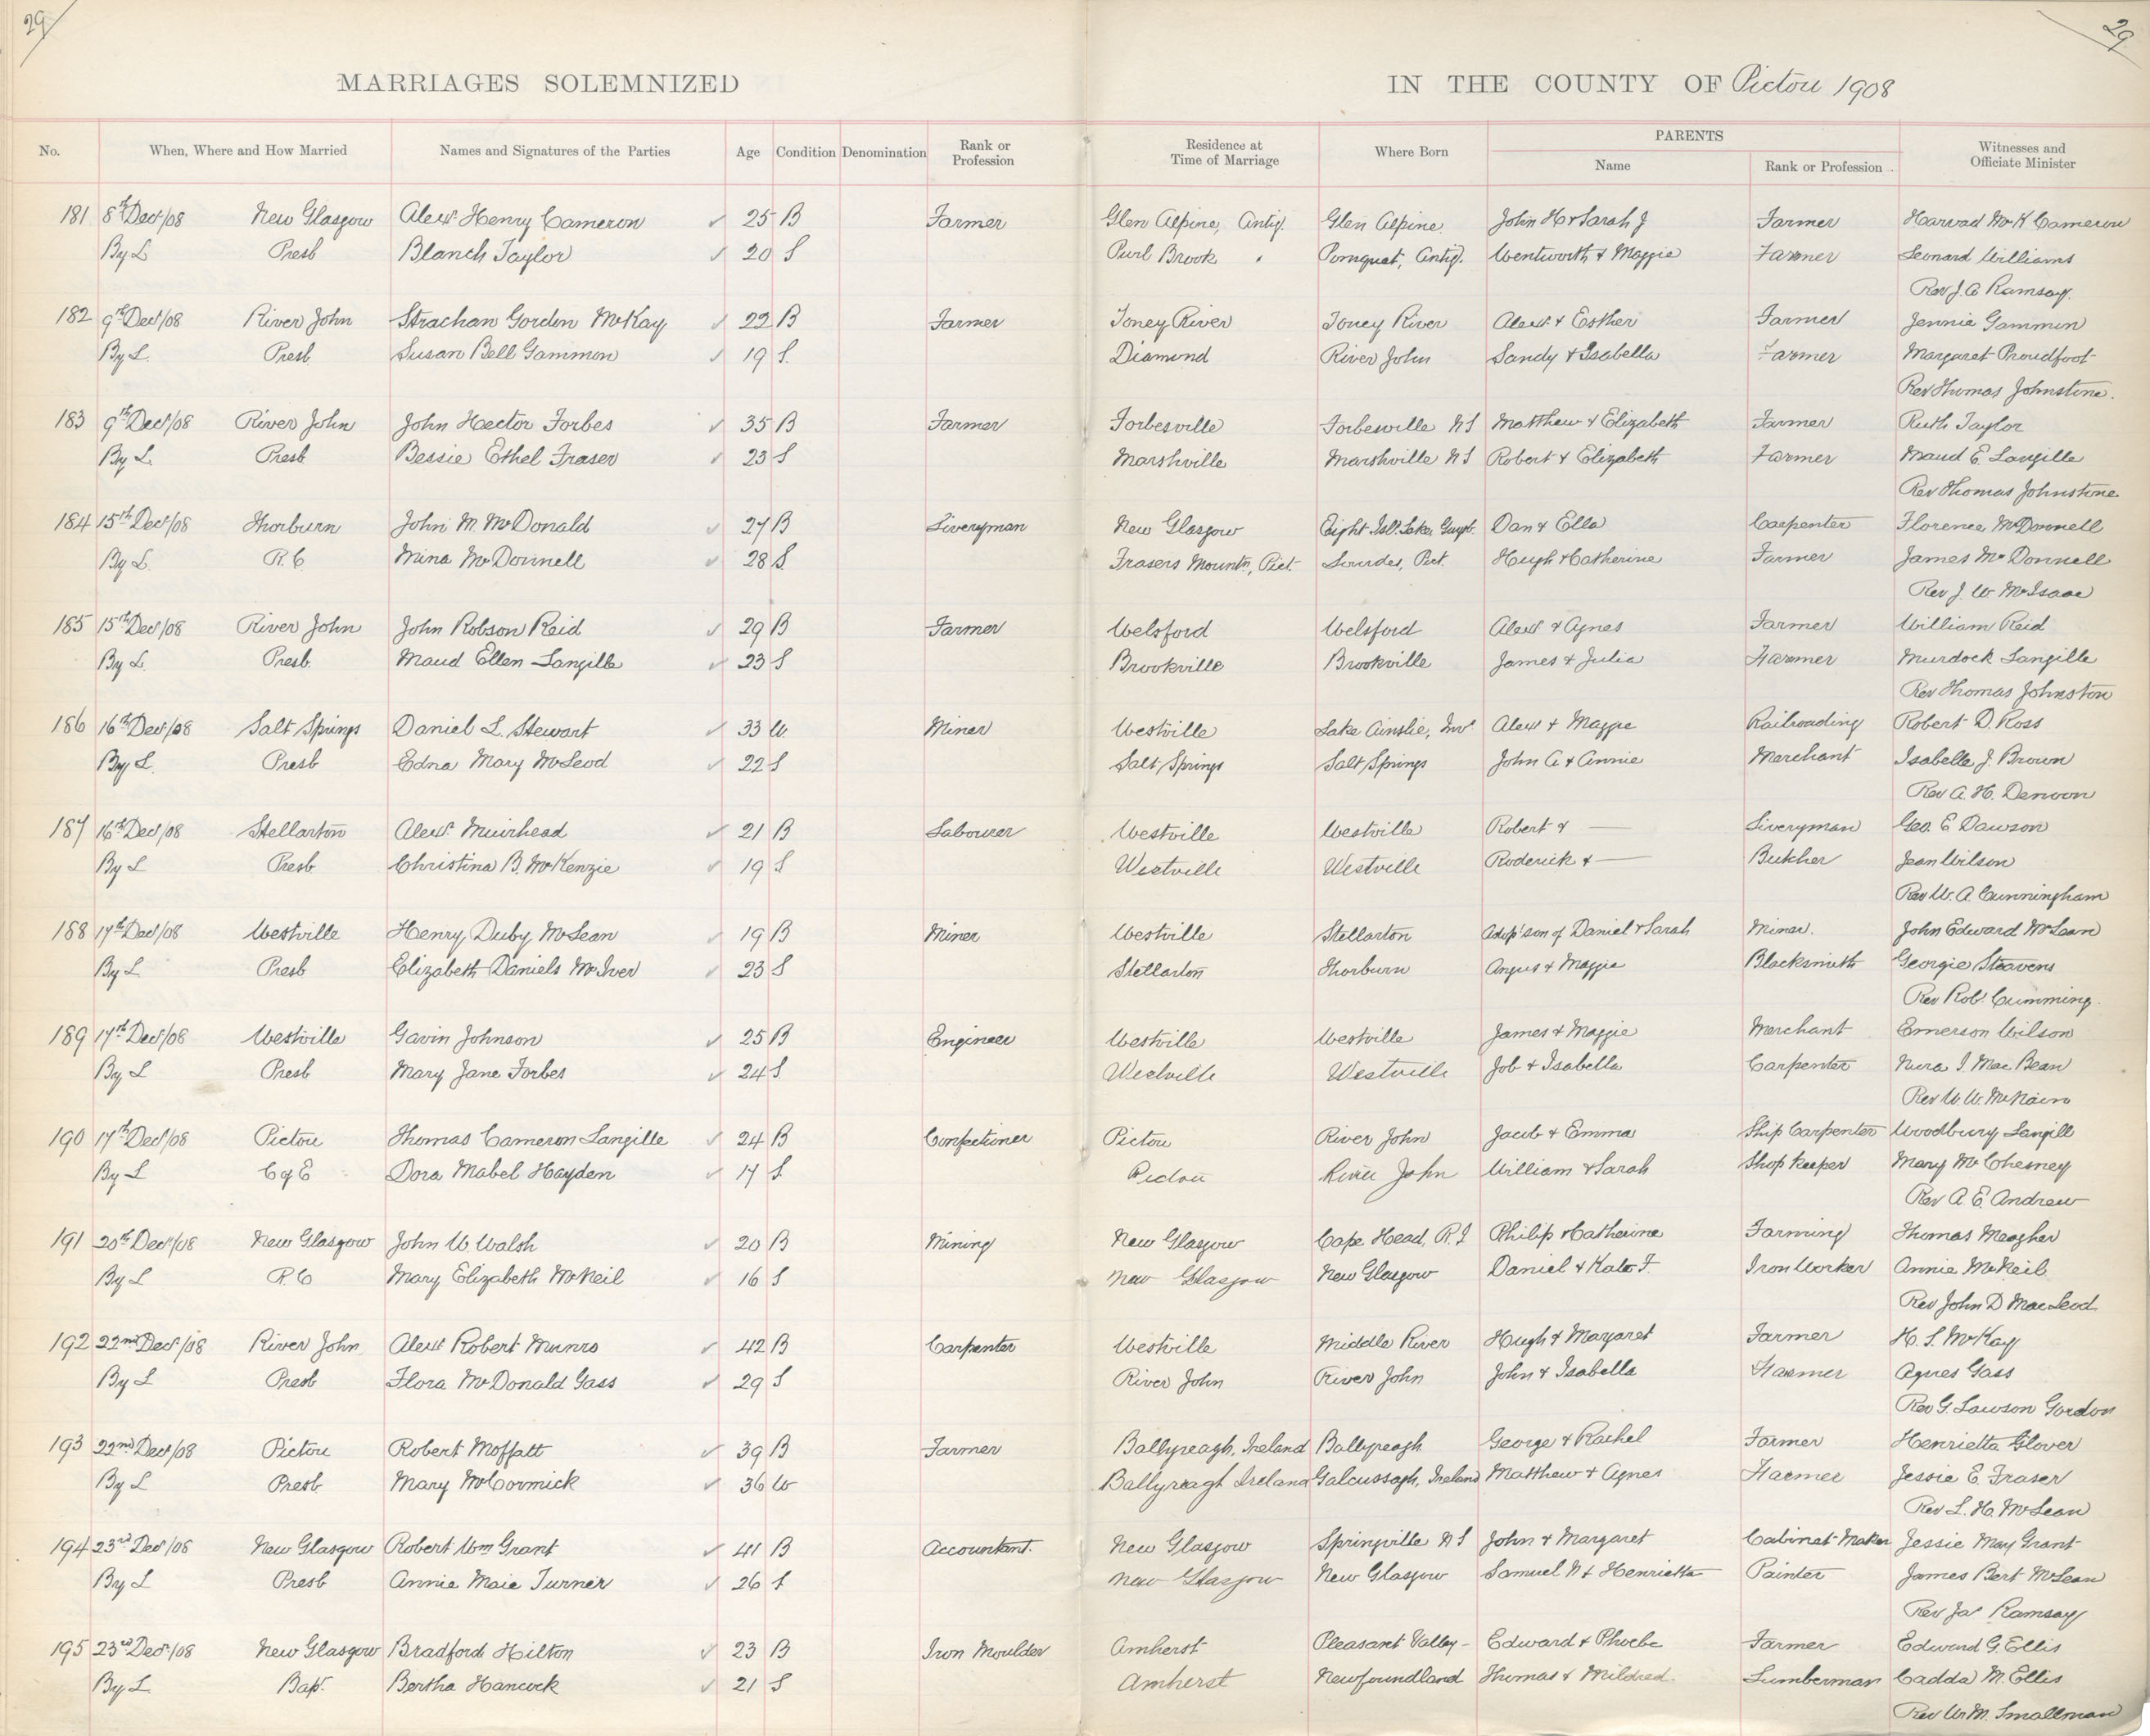 29
29
MARRIAGES SOLEMNIZED IN THE COUNTY OF Pictou 1908
PARENTS
No. When, Where and How Married Names and Signatures of the Parties Age Condition Denomination Rank or Profession Residence at Time of Marriage Where Born Name Rank or Profession Witnesses and Officiate Minister
181 8th Decr/08 New Glasgow Alexr Henry Cameron ✓ 25 B Farmer Glen Alpine, Antig. Glen Alpine John H & Sarah J Farmer Harvad McK Cameron
By L Presb Blanch Taylor ✓ 20 S Purl Brook " Pomquet, Antig. Wentworth & Maggie Farmer Leonard Williams
Rev J. A Ramsay.
182 9th Decr/08 River John Strachan Gordon McKay ✓ 22 B Farmer Toney River Toney River Alexr & Esther Farmer Jennie Gammon
By L. Presb. Susan Bell Gammon ✓ 19 S. Diamond River John Sandy & Isabella Farmer Margaret Proudfoot
Rev Thomas Johnstone.
183 9th Decr/08 River John John Hector Forbes ✓ 35 B Farmer Forbesville Forbesville NS Matthew & Elizabeth Farmer Ruth Taylor
By L. Presb Bessie Ethel Fraser ✓ 23 S Marshville Marshville NS Robert & Elizabeth Farmer Maud E. Langille
Rev Thomas Johnstone
184 15th Decr/08 Thorburn John M. McDonald ✓ 27 B Liveryman New Glasgow Eight Isl. Lake, Guyb. Dan & Ella Carpenter Florence McDonnell
By L. R. C Mina McDonnell ✓ 28 S. Frasers Mountn, Pict. Lourdes, Pict. Hugh & Catherine Farmer James McDonnell
Rev J. W McIsaac
185 15th Decr/08 River John John Robson Reid ✓ 29 B Farmer Welsford Welsford Alexr & Agnes Farmer William Reid
By L. Presb. Maud Ellen Langille ✓ 23 S Brookville Brookville James & Julia Farmer Murdock Langille
Rev Thomas Johnston
186 16th Decr/08 Salt Springs Daniel L. Stewart ✓ 33 W Miner Westville Lake Ainslie, Inv. Alexr & Maggie Railroading Robert D. Ross
By L. Presb Edna Mary McLeod ✓ 22 S Salt Springs Salt Springs John A & Annie Merchant Isabelle J. Brown
Rev A. H. Denoon
187 16th Decr/08 Stellarton Alexr Muirhead ✓ 21 B Labourer Westville Westville Robert & — Liveryman Geo. E Dawson
By L Presb Christina B. McKenzie ✓ 19 S Westville Westville Roderick & — Butcher Jean Wilson
Rev W. A Cunningham
188 17th Decr/08 Westville Henry Duby McLean ✓ 19 B Miner Westville Stellarton Adop' son of Daniel & Sarah Miner. John Edward McLean
By L Presb Elizabeth Daniels McIver ✓ 23 S Stellarton Thorburn Angus & Maggie Blacksmith Georgie Steavens
Rev Robt Cumming.
189 17th Decr/08 Westville Gavin Johnson ✓ 25 B Engineer Westville Westville James & Maggie Merchant Emerson Wilson
By L Presb Mary Jane Forbes ✓ 24 S Westville Westville Job & Isabella Carpenter Nina I. MacBean
Rev W. W. McNairn
190 17th Decr/08 Pictou Thomas Cameron Langille ✓ 24 B Confectioner Pictou River John Jacob & Emma Ship Carpenter Woodbury Langill
By L C of E Dora Mabel Hayden ✓ 17 S. Pictou River John William & Sarah Shop Keeper Mary McChesney
Rev A. E. Andrew
191 20th Decr/08 New Glasgow John W. Walsh ✓ 20 B Mining New Glasgow Cape Head, P. I Philip & Catherine Farming Thomas Meagher
By L R. C Mary Elizabeth McNeil ✓ 16 S New Glasgow New Glasgow Daniel & Kate F. Iron Worker Annie McNeil
Rev John D MacLeod
192 22nd Decr/08 River John Alexr Robert Munro ✓ 42 B Carpenter Westville Middle River Hugh & Margaret Farmer H. S. McKay
By L Presb Flora McDonald Gass ✓ 29 S River John River John John & Isabella Farmer Agnes Gass
Rev G. Lawson Gordon
193 22nd Decr/08 Pictou Robert Moffatt ✓ 39 B Farmer Ballyreagh, Ireland Ballyreagh George & Rachel Farmer Henrietta Glover
By L Presb Mary McCormick ✓ 36 W Ballyreagh Ireland Galcussagh, Ireland Matthew & Agnes Farmer Jessie E. Fraser
Rev L. H. McLean
194 23rd Decr/08 New Glasgow Robert Wm Grant ✓ 41 B Accountant. New Glasgow Springville NS John & Margaret Cabinet Maker Jessie May Grant
By L Presb Annie Maie Turner ✓ 26 S New Glasgow New Glasgow Samuel N & Henrietta Painter James Bert McLean
Rev Jas Ramsay
195 23rd Decr/08 New Glasgow Bradford Hilton ✓ 23 B Iron Moulder Amherst Pleasant Valley Edward & Phoebe Farmer Edward G. Ellis
By L. Bapt. Bertha Hancock ✓ 21 S Amherst Newfoundland Thomas & Mildred. Lumberman Cadda M. Ellis
Rev W. M. Smallman